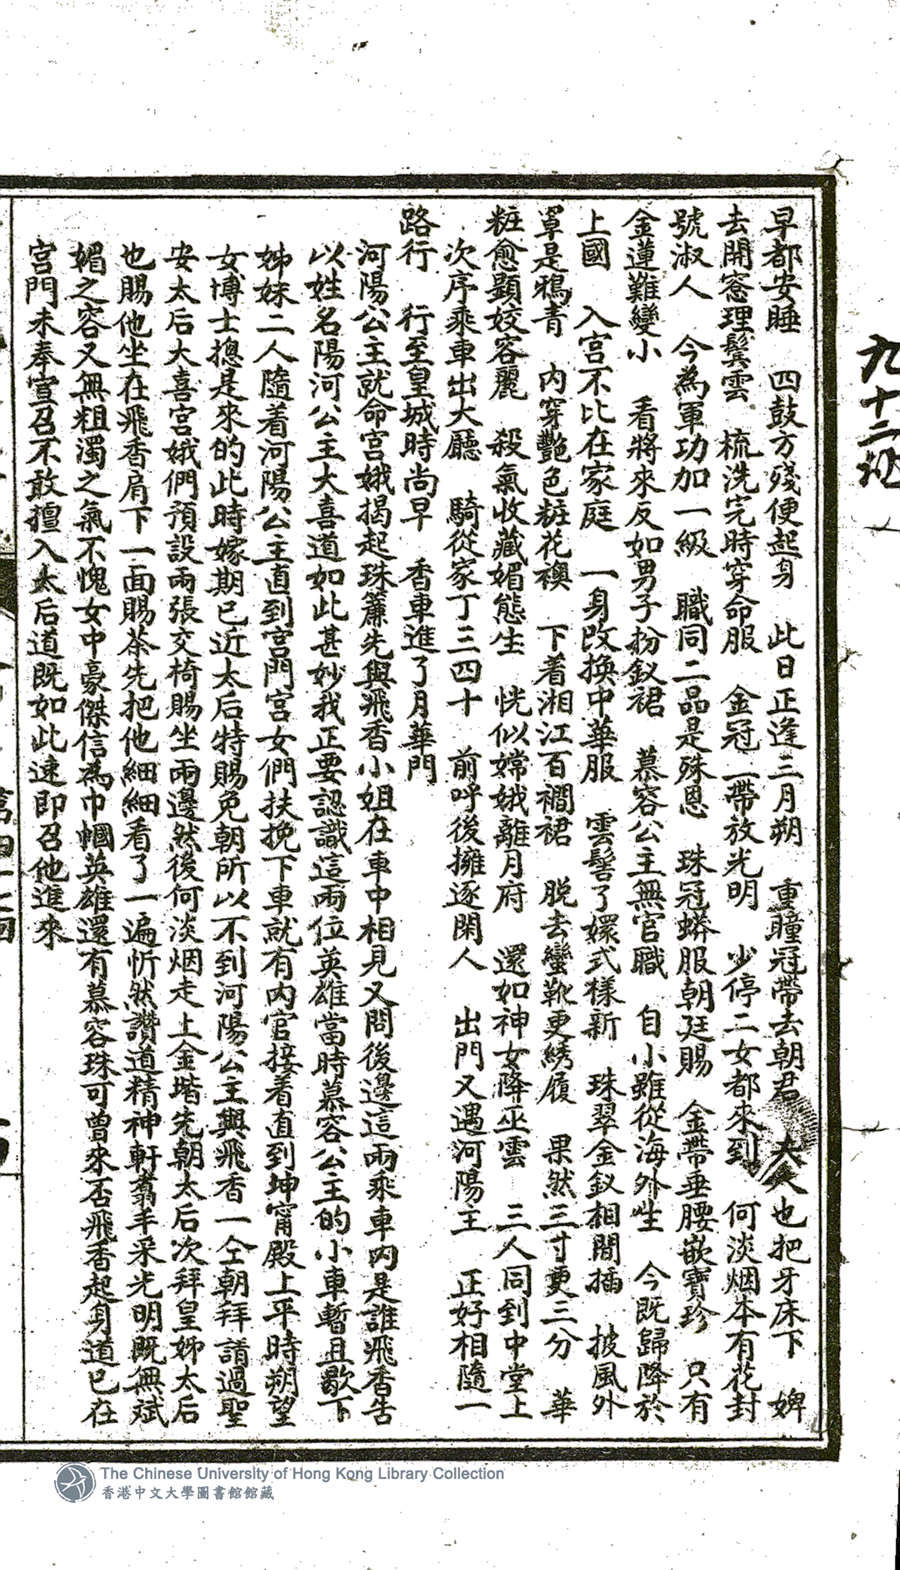 九十二
早都安睡　四鼓方殘便起身　此日正逢三月朔　重瞳冠帶去朝君　夫人也把牙床下　婢
去開窓理鬓雲　梳洗完時穿命服　金冠一帶放光明　少停二女都來到　何淡烟本有花封
號淑人　今為軍功加一級　職同二品是殊恩　珠冠蟒服朝廷賜　金帶垂腰嵌寶珍　只有
金蓮難變小　看將來反如男子扮釵裙　慕容公主無官職　自小雖從海外生　今既歸降於
上國　入宮不比在家庭　一身改換中華服　雲髻了嬛式樣新　珠翠金釵相間插　披風外
罩是鴉青　內穿艷色粧花襖　下着湘江百襉裙　脱去蠻靴更綉履　果然三寸更三分　華
粧愈顯姣容麗　殺氣收藏媚態生　恍似嫦娥離月府　還如神女降巫雲　三人同到中堂上
次序乘車出大廳　騎從家丁三四十　前呼後擁逐閑人　出門又遇河陽主　正好相隨一
路行　行至皇城時尚早　香車進了月華門
河陽公主就命宮娥揭起珠簾先與飛香小姐在車中相見又問後邊這兩乘車內是誰飛香告
以姓名陽河公主大喜道如此甚妙我正要認識這兩位英雄當時慕容公主的小車暫且歇下
姊妹二人隨着河陽公主直到宮門宮女們扶挽下車就有內官接着直到坤甯殿上平時朔望
女博士摠是來的此時嫁期已近太后特賜免朝所以不到河陽公主與飛香一仝朝拜請過聖
安太后大喜宮娥們預設兩張交椅賜坐兩邊然後何淡烟走上金堦先朝太后次拜皇姊太后
也賜他坐在飛香肩下一面賜茶先把他細細看了一遍忻然讚道精神軒翥丰采光明既無斌
媚之容又無粗濁之氣不愧女中豪傑信為巾幗英雄還有慕容珠可曾來否飛香起身道已在
宮門未奉宣召不敢擅入太后道既如此速即召他進來
The Chinese University of Hong Kong Library Collection
香港中文大學圖書館館藏